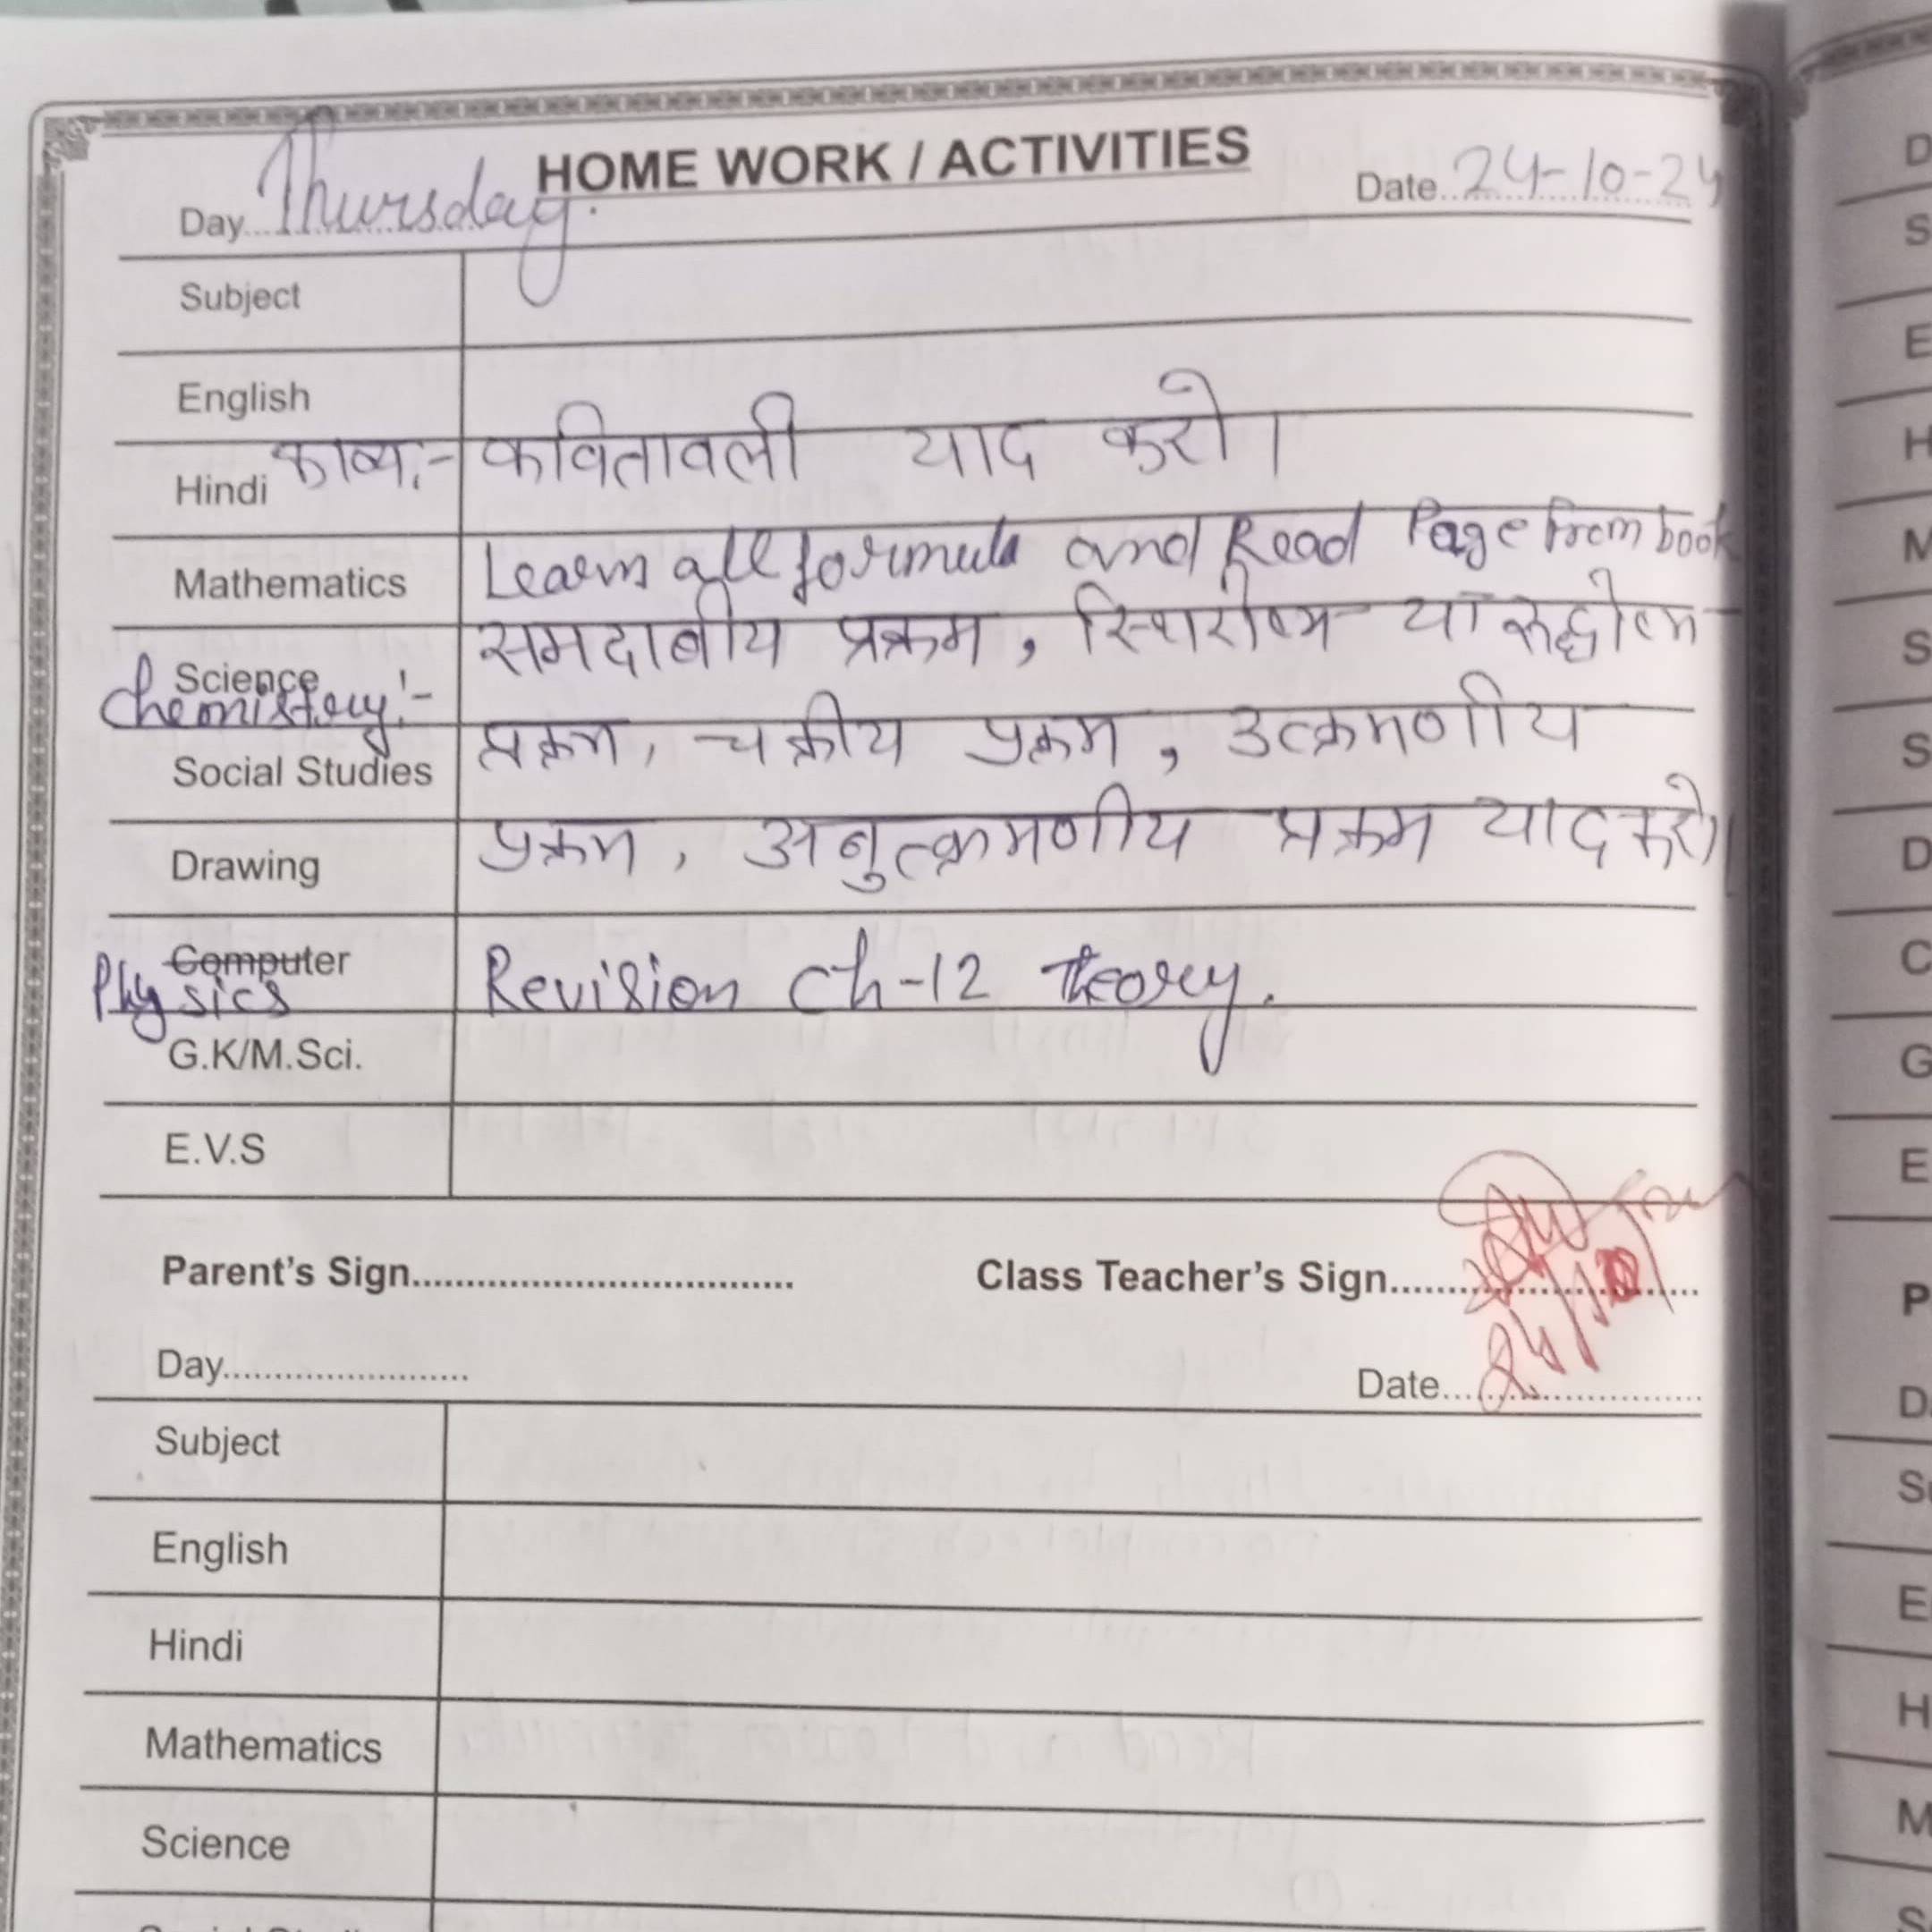 HOME WORK / ACTIVITIES
Day....Thursday. Date..24-10-24
Subject
English
Hindi काव्य:- कवितावली याद करो।
Mathematics Learn all formula and Read Page from book
Science समदाबीय प्रक्रम, स्थिरोष्म या रुद्धोष्म
Chemistry:- प्रक्रम, चक्रीय प्रक्रम, उत्क्रमणीय
Social Studies
Drawing प्रक्रम, अनुत्क्रमणीय प्रक्रम याद करो।
Computer
Physics Revision Ch-12 theory.
G.K/M.Sci.
E.V.S
Parent's Sign.................................... Class Teacher's Sign..............................
24/10
Day........................ Date........................
Subject
English
Hindi
Mathematics
Science